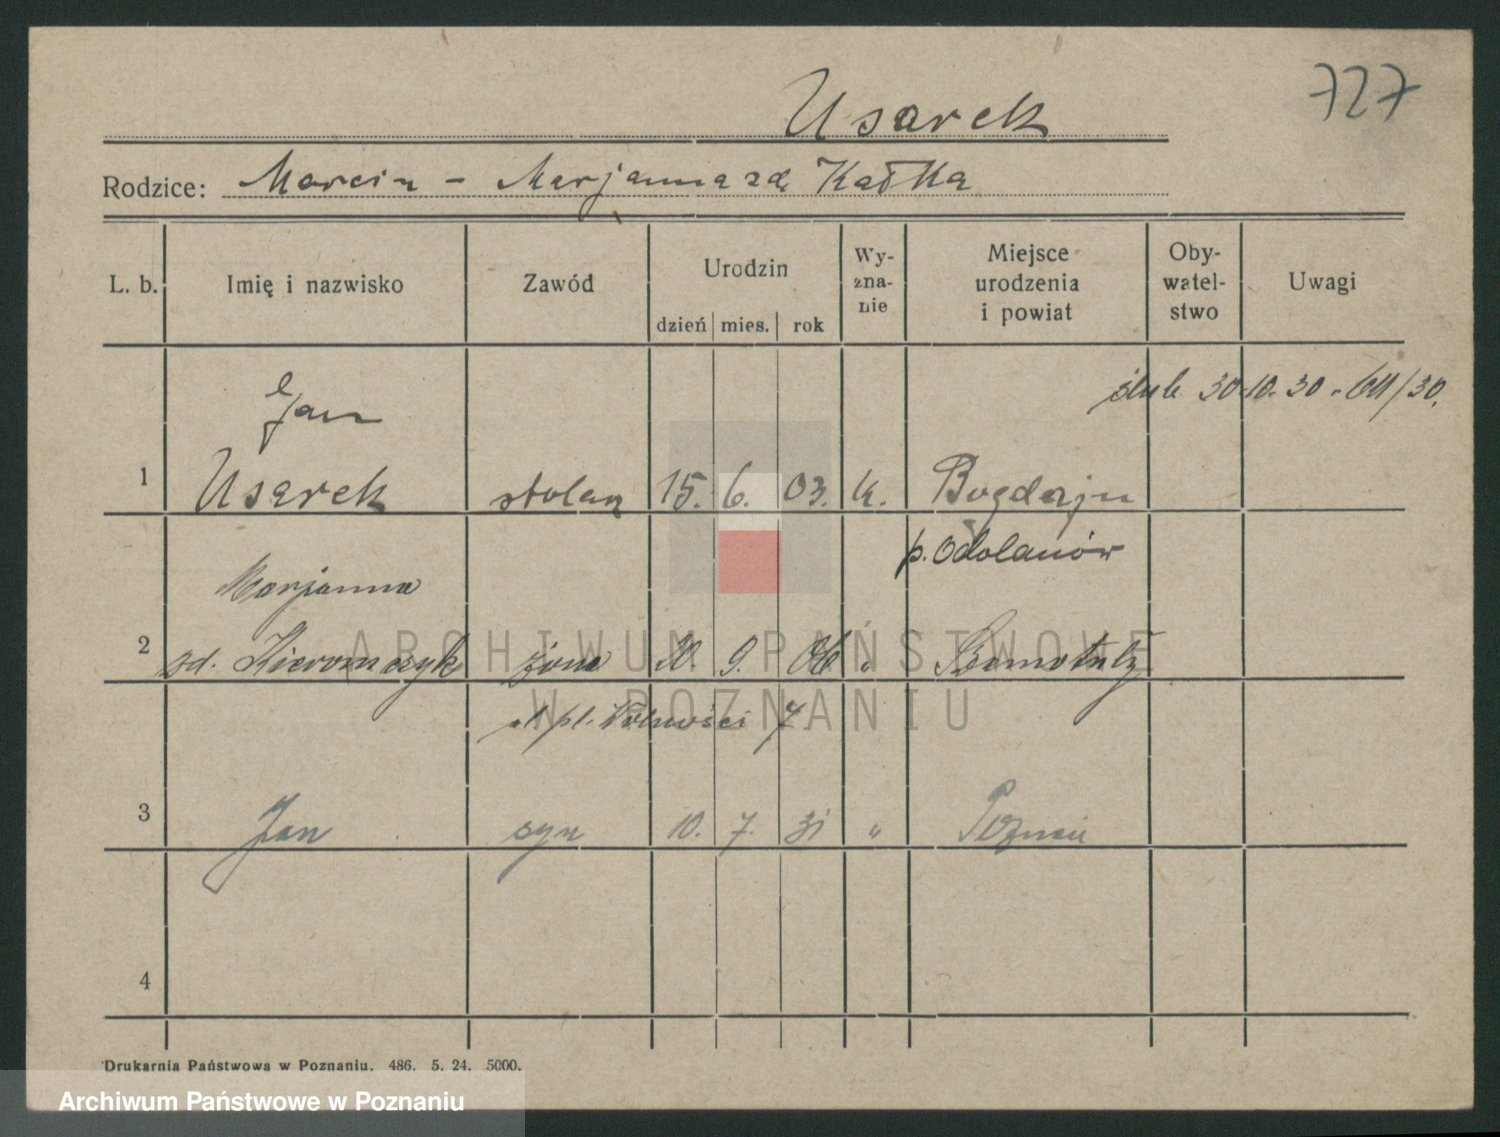 727
Usarek
Rodzice: Marcin - Marjanna zd Kałka
L. b. Imię i nazwisko Zawód Urodzin dzień mies. rok Wy-zna-nie Miejsce urodzenia i powiat Oby-watel-stwo Uwagi
ślub 30.10.30 -
Jan
1 Usarek stolarz 15. 6. 03. k. Bogdaju
p. Odolanów
Marjanna
2 zd. żona 20. 9. 06 " Szamotuły
pl. Wolności 7
3 Jan syn 10. 7. 31 " Poznań
4
Drukarnia Państwowa w Poznaniu. 486. 5. 24. 5000.
ARCHIWUM PAŃSTWOWE
W POZNANIU
Archiwum Państwowe w Poznaniu